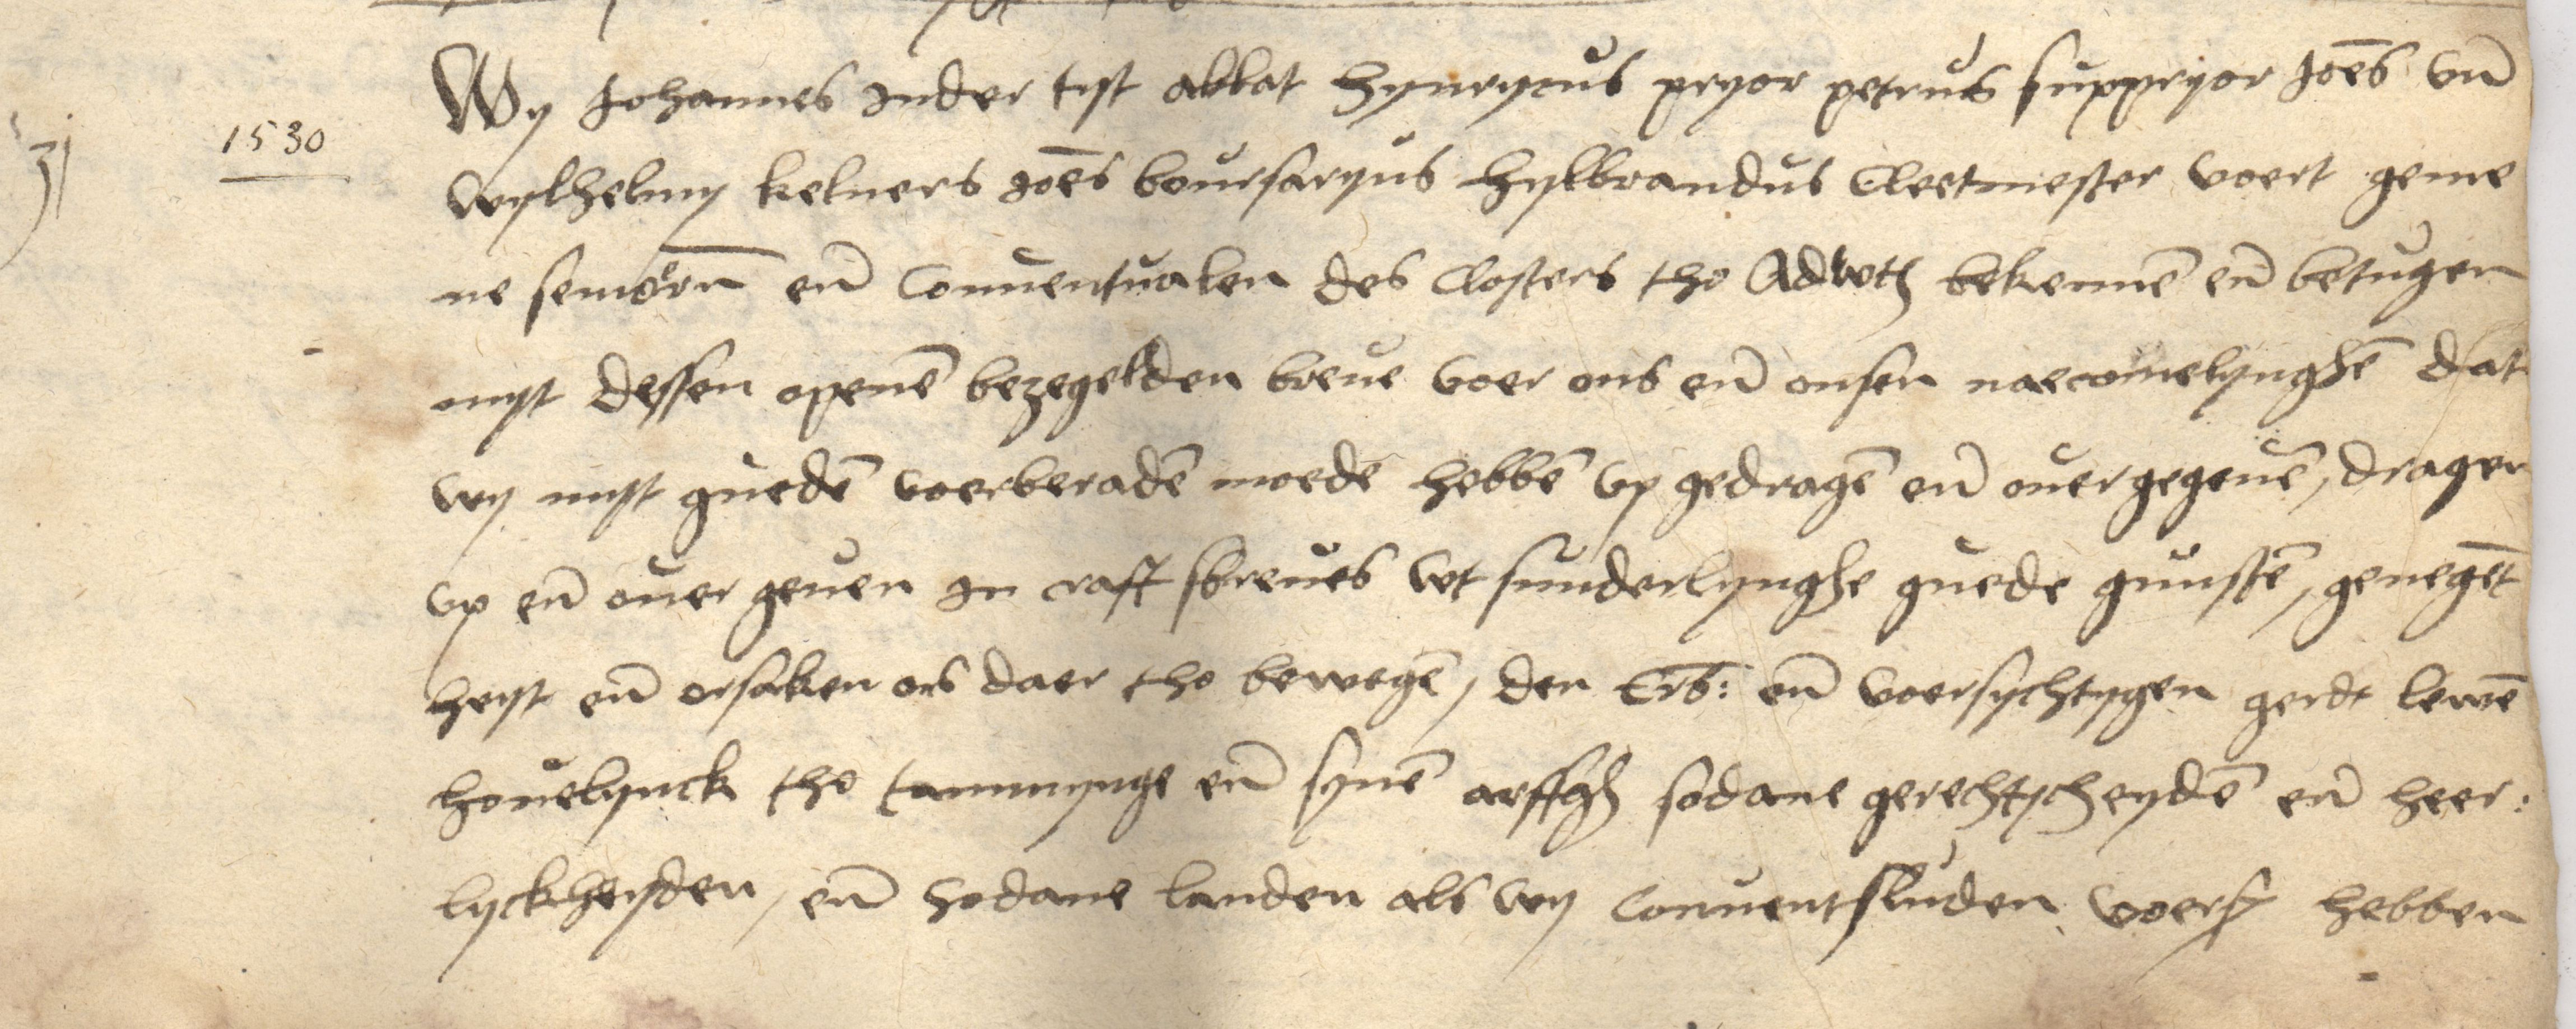 1530
Wy Johannes Inder tyt abbat Hynrycus pryor petrus suppryor Joēs vn̄
Wylhelmy kelners Joēs boursaryus Hylbrandus Cleetmester voert geme
ne senioȓn en̄ Conuentualen des Closters tho Adwth bekennē en̄ betugen
myt dessen openē bezegelden breue voer ons en̄ onsen naecomelynghē dat
wy myt guedē voerberadē moede hebbē vp gedragē en̄ ouergegeuē, dragen
vp en̄ ouer geuen In craft sbreues wt sunderlynghe guede gunstē, genegēt
heyt en̄ orsaken ons daer tho bewegē, den Erb: en̄ voersychtygen gerdt lewē
houelynck tho tammynge en̄ synē arffgh sodane gerechtycheydē en̄ heer:
lyckheyden, en̄ hodane landen als wy Conuentsluden voers hebben